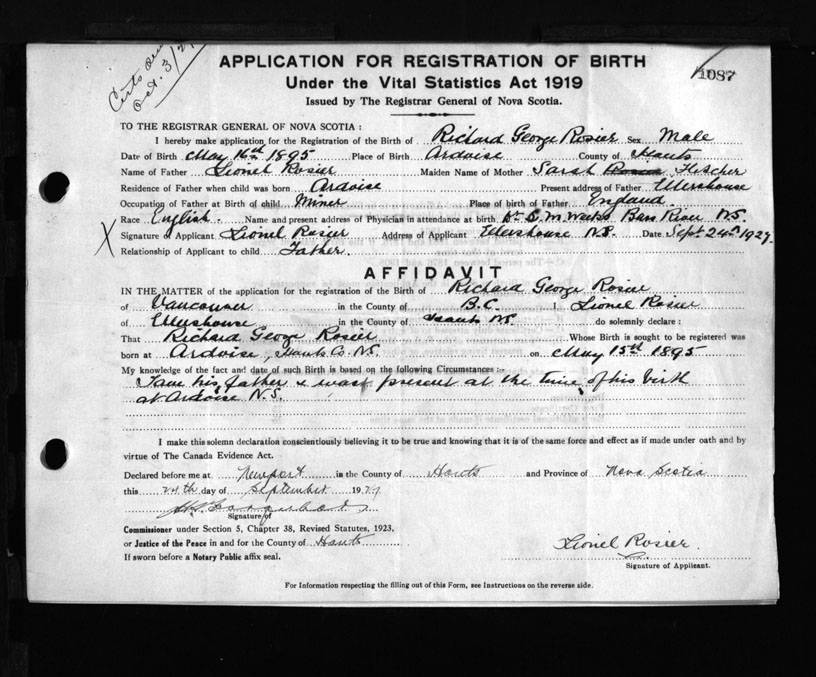 Oct. 3/29
1087
APPLICATION FOR REGISTRATION OF BIRTH
Under the Vital Statistics Act 1919
Issued by The Registrar General of Nova Scotia.
TO THE REGISTRAR GENERAL OF NOVA SCOTIA :
I hereby make application for the Registration of the Birth of Richard George Rosier Sex Male
Date of Birth May 16th 1895 Place of Birth Ardoise County of Hants
Name of Father Lionel Rosier Maiden Name of Mother Sarah Rosier Fletcher
Residence of Father when child was born Ardoise Present address of Father Ellershouse
Occupation of Father at Birth of child Miner Place of birth of Father England
Race English. Name and present address of Physician in attendance at birth Dr. E. M. Weeks Bass River N.S.
X Signature of Applicant Lionel Rosier Address of Applicant Ellershouse N.S. Date Sept. 24th 1929.
Relationship of Applicant to child Father.
AFFIDAVIT
IN THE MATTER of the application for the registration of the Birth of Richard George Rosier
of Vancouver in the County of B.C. I Lionel Rosier
of Ellershouse in the County of Hants N.S. do solemnly declare :
That Richard George Rosier Whose Birth is sought to be registered was
born at Ardoise, Hants Co. N.S. on May 15th 1895
My knowledge of the fact and date of such Birth is based on the following Circumstances :-
I am his father & was present at the time of his birth
at Ardoise N.S.
I make this solemn declaration conscientiously believing it to be true and knowing that it is of the same force and effect as if made under oath and by
virtue of The Canada Evidence Act.
Declared before me at Newport in the County of Hants and Province of Nova Scotia
this 24th day of September 1929
Signature of
Commissioner under Section 5, Chapter 38, Revised Statutes, 1923.
or Justice of the Peace in and for the County of Hants
If sworn before a Notary Public affix seal.
Lionel Rosier.
Signature of Applicant.
For Information respecting the filling out of this Form, see Instructions on the reverse side.